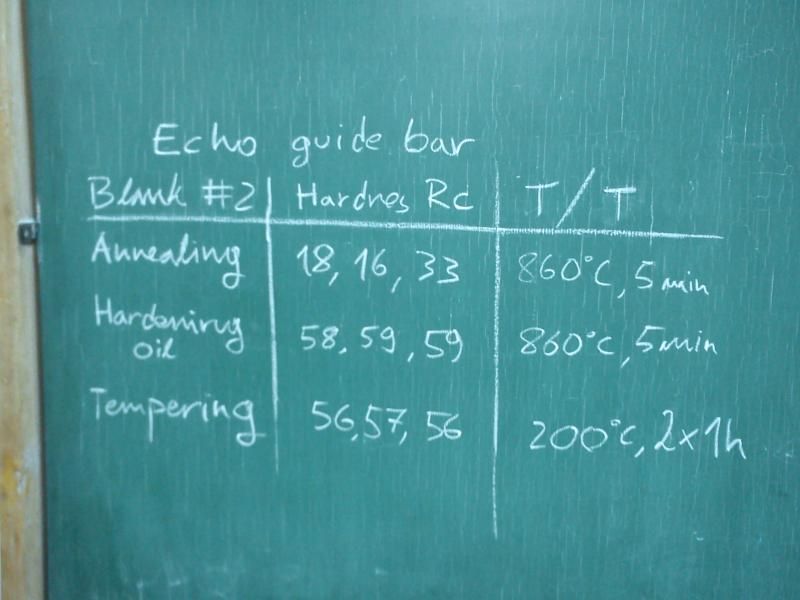 Echo guide bar
Blank #2 Hardnes Rc T/T
Annealing 18, 16, 33 860°C, 5 min
Hardening 58, 59, 59 860°C, 5min
oil
Tempering 56, 57, 56 200°C, 2x1h